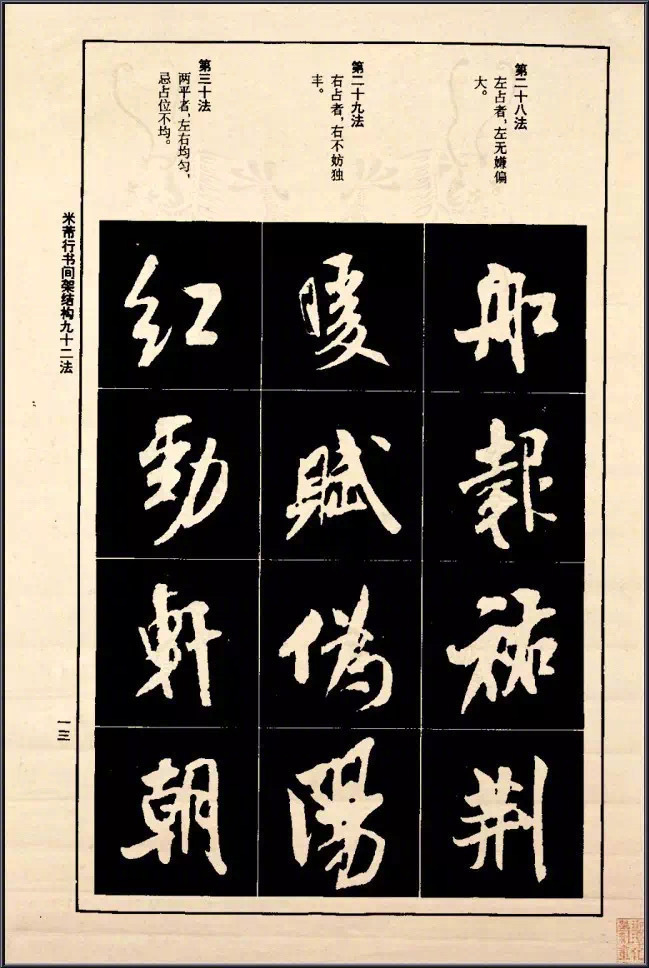 第二十八法
左占者，左无嫌偏
大。
第二十九法
右占者，右不妨独
丰。
第三十法
两平者，左右均匀，
忌占位不均。
船
報
祐
荆
暖
赋
偽
陽
红
勁
軒
朝
米芾行书间架结构九十二法
一三